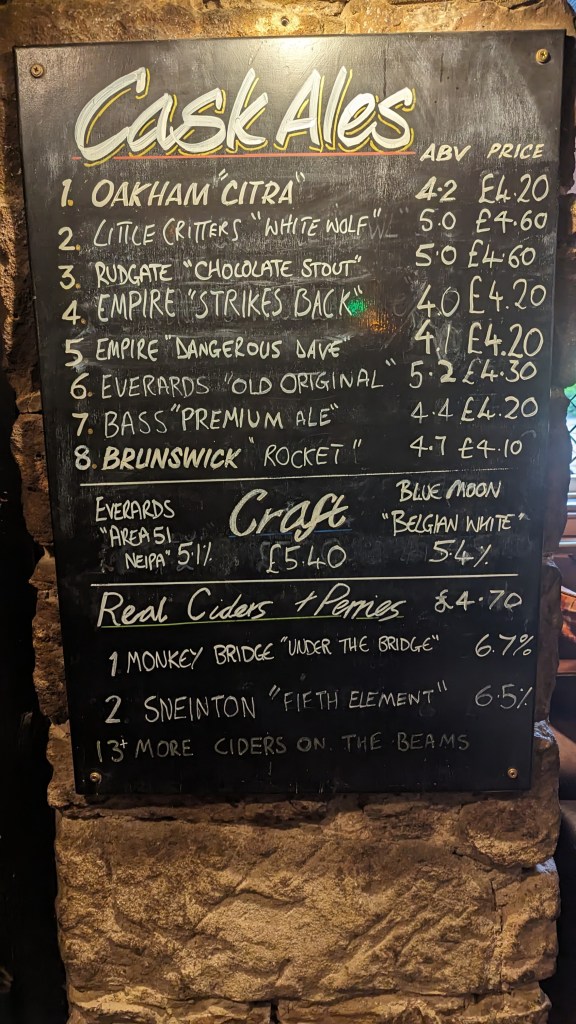 Cask Ales
ABV PRICE
1. OAKHAM "CITRA" 4.2 £4.20
2. LITTLE CRITTERS "WHITE WOLF" 5.0 £4.60
3. RUDGATE "CHOCOLATE STOUT" 5.0 £4.60
4. EMPIRE "STRIKES BACK" 4.0 £4.20
5. EMPIRE "DANGEROUS DAVE" 4.1 £4.20
6. EVERARDS "OLD ORIGINAL" 5.2 £4.30
7. BASS "PREMIUM ALE" 4.4 £4.20
8. BRUNSWICK "ROCKET" 4.7 £4.10
EVERARDS
"AREA 51
NEIPA" 5.1%
Craft
£5.40
BLUE MOON
"BELGIAN WHITE"
5.4%
Real Ciders + Perries £4.70
1 MONKEY BRIDGE "UNDER THE BRIDGE" 6.7%
2 SNEINTON "FIFTH ELEMENT" 6.5%
13+ MORE CIDERS ON THE BEAMS